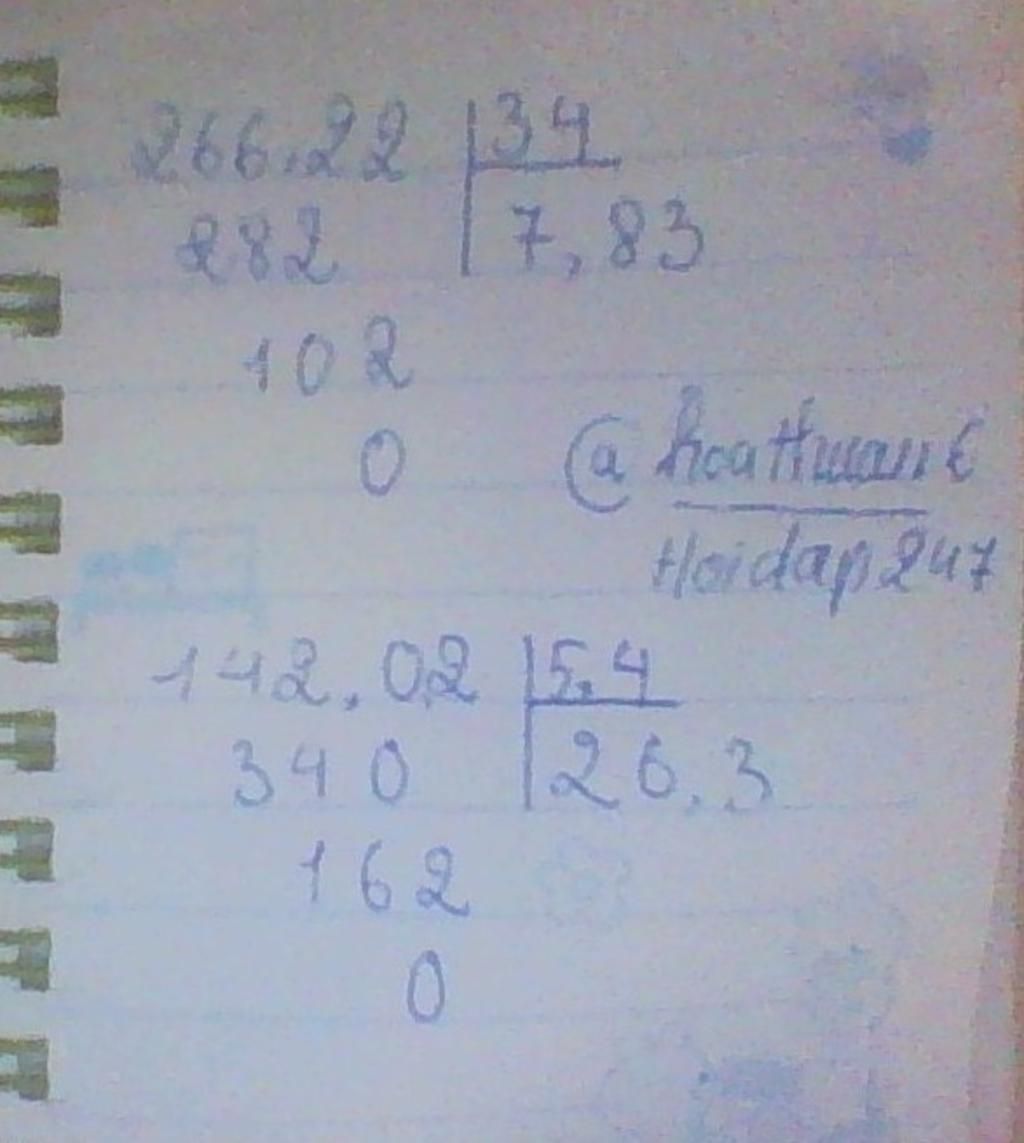 266,22 34
282 7,83
102
0 @
Hoidap247
142,02 5,4
340 26,3
162
0